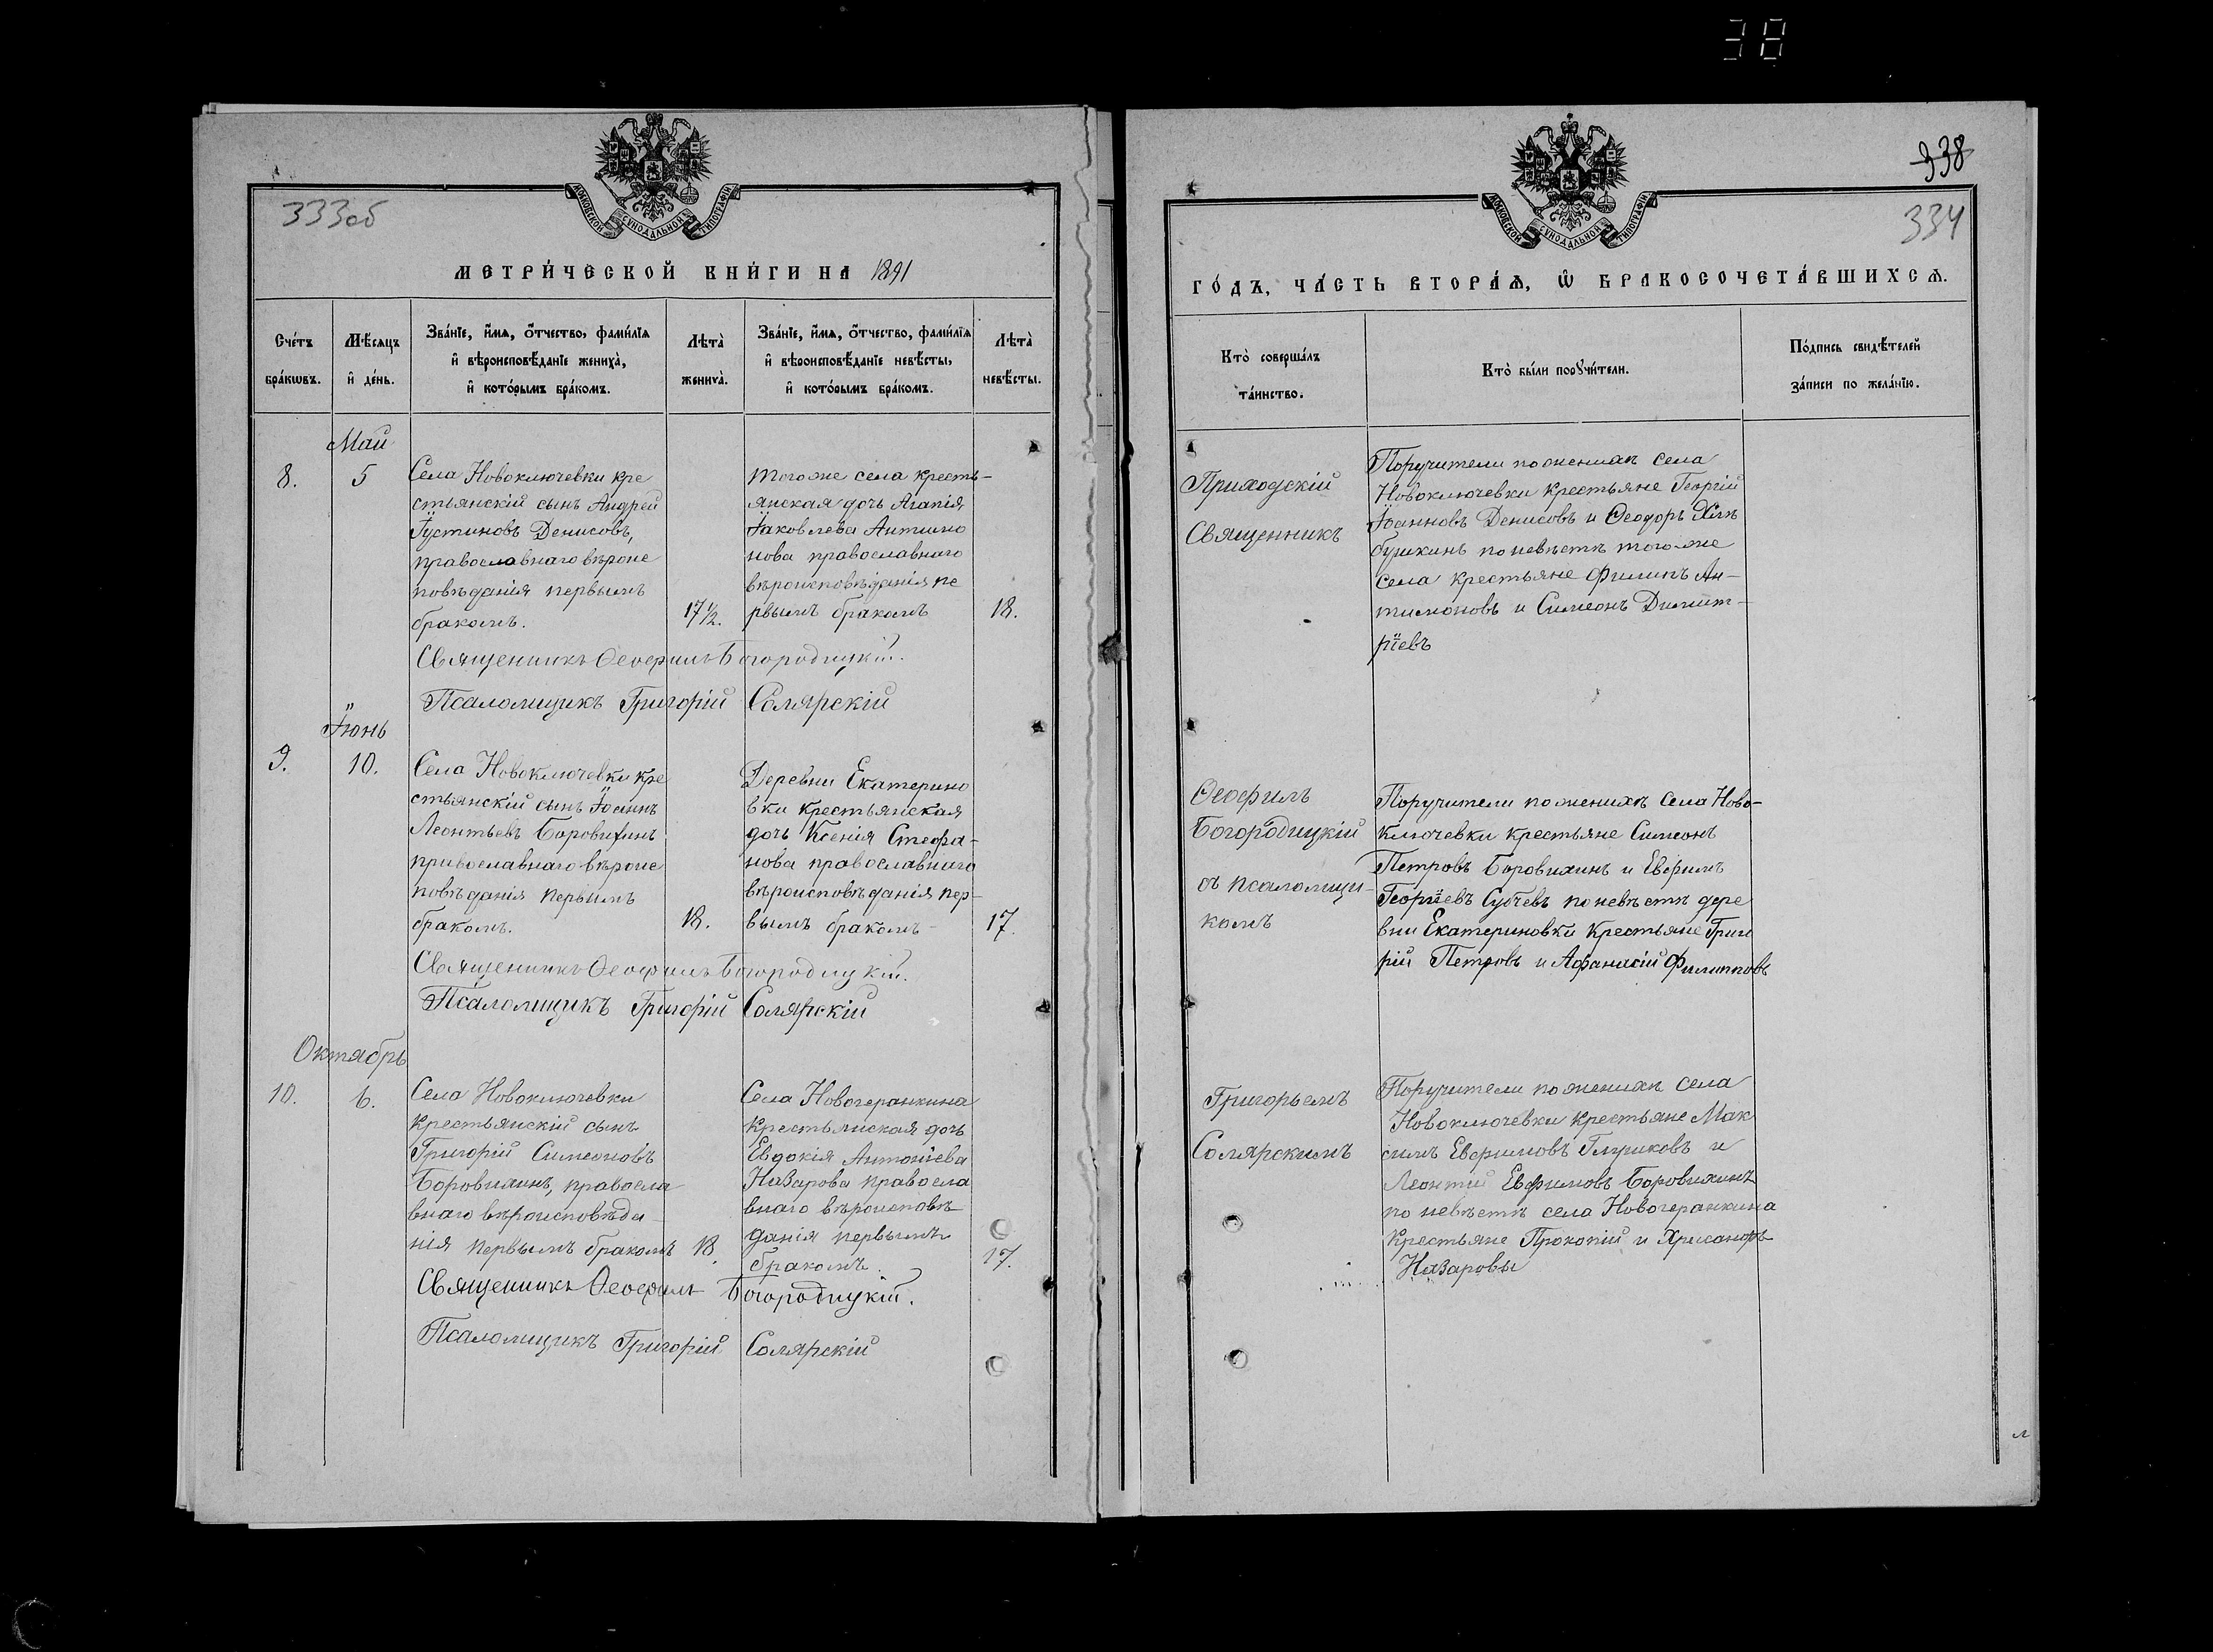 38
333об
МОСКОВСКОЙ СѴНОДАЛЬНОЙ ТИПОГРАФІИ
МЕТРИ́ЧЕСКОЙ КНИ́ГИ НА 1891
Сче́тъ бра́кѡвъ.
Мѣ́сяцъ и҆ де́нь.
Зва́нїе, и҆́мѧ, ѻ҆́тчество, фами́лїѧ
и҆ вѣроисповѣ́данїе жениха̀,
и҆ кото́рымъ бра́комъ.
Лѣта̀ жениха̀.
Зва́нїе, и҆́мѧ, ѻ҆́тчество, фами́лїѧ
и҆ вѣроисповѣ́данїе невѣ́сты,
и҆ кото́рымъ бра́комъ.
Лѣта̀ невѣ́сты.
Май
8.
5
Села Новоключевки кре
стьянскій сынъ Андрей
Іустиновъ Денисовъ,
православнаго вѣроис
повѣданія первымъ
бракомъ.
17 1/2.
того же села кресть-
янская дочь Агапія
Іаковлева Антимо
нова православнаго
вѣроисповѣданія пе
рвымъ бракомъ
18.
Священникъ Ѳеофилъ Богородицкій.
Псаломщикъ Григорій Солярскій
Іюнь
9.
10.
Села Новоключевки кре
стьянскій сынъ Іоаннъ
Леонтьевъ Боровихинъ
православнаго вѣроис
повѣданія первымъ
бракомъ.
18.
Деревни Екатерино
вки крестьянская
дочь Ксенія Стефа-
нова православнаго
вѣроисповѣданія пер-
вымъ бракомъ
17.
Священникъ Ѳеофилъ Богородицкій.
Псаломщикъ Григорій Солярскій
Октябрь
10.
6.
Села Новоключевки
крестьянскій сынъ
Григорій Симеоновъ
Боровихинъ, правосла
внаго вѣроисповѣда-
нія первымъ бракомъ
18.
Села Новогеранкина
крестьянская дочь
Евдокія Антоніева
Назарова правосла
внаго вѣроисповѣ
данія первымъ
бракомъ.
17.
Священникъ Ѳеофилъ Богородицкій.
Псаломщикъ Григорій Солярскій
338
334
МОСКОВСКОЙ СѴНОДАЛЬНОЙ ТИПОГРАФІИ
ГО́ДЪ, ЧА́СТЬ ВТОРА́Ѧ, Ѡ҆ БРАКОСОЧЕТА́ВШИХСѦ.
Кто̀ соверша́лъ
та́инство.
Кто̀ бы́ли порꙋчи́тели.
По́дпись свидѣ́телей
за́писи по жела́нїю.
Приходскій
Священникъ
Ѳеофилъ
Богородицкій
съ псаломщи-
комъ
Григорьемъ
Солярскимъ
Поручители по женихѣ села
Новоключевки крестьяне Георгій
Іоанновъ Денисовъ и Ѳеодоръ
по невѣстѣ того же
села крестьяне Филипъ Ан-
тимоновъ и Симеонъ Димит-
ріевъ
Поручители по женихѣ Села Ново-
ключевки крестьяне Симеонъ
Петровъ Боровихинъ и Евфимъ
Георгіевъ по невѣстѣ дере
вни Екатериновки крестьяне Григо
рій Петровъ и Афанасій Филипповъ
Поручители по женихѣ села
Новоключевки крестьяне Мак
симъ Евфимовъ Глушковъ и
Леонтій Евфимовъ Боровихинъ
по невѣстѣ села Новогеранкина
крестьяне Прокопій и Хрисанфъ
Назаровы